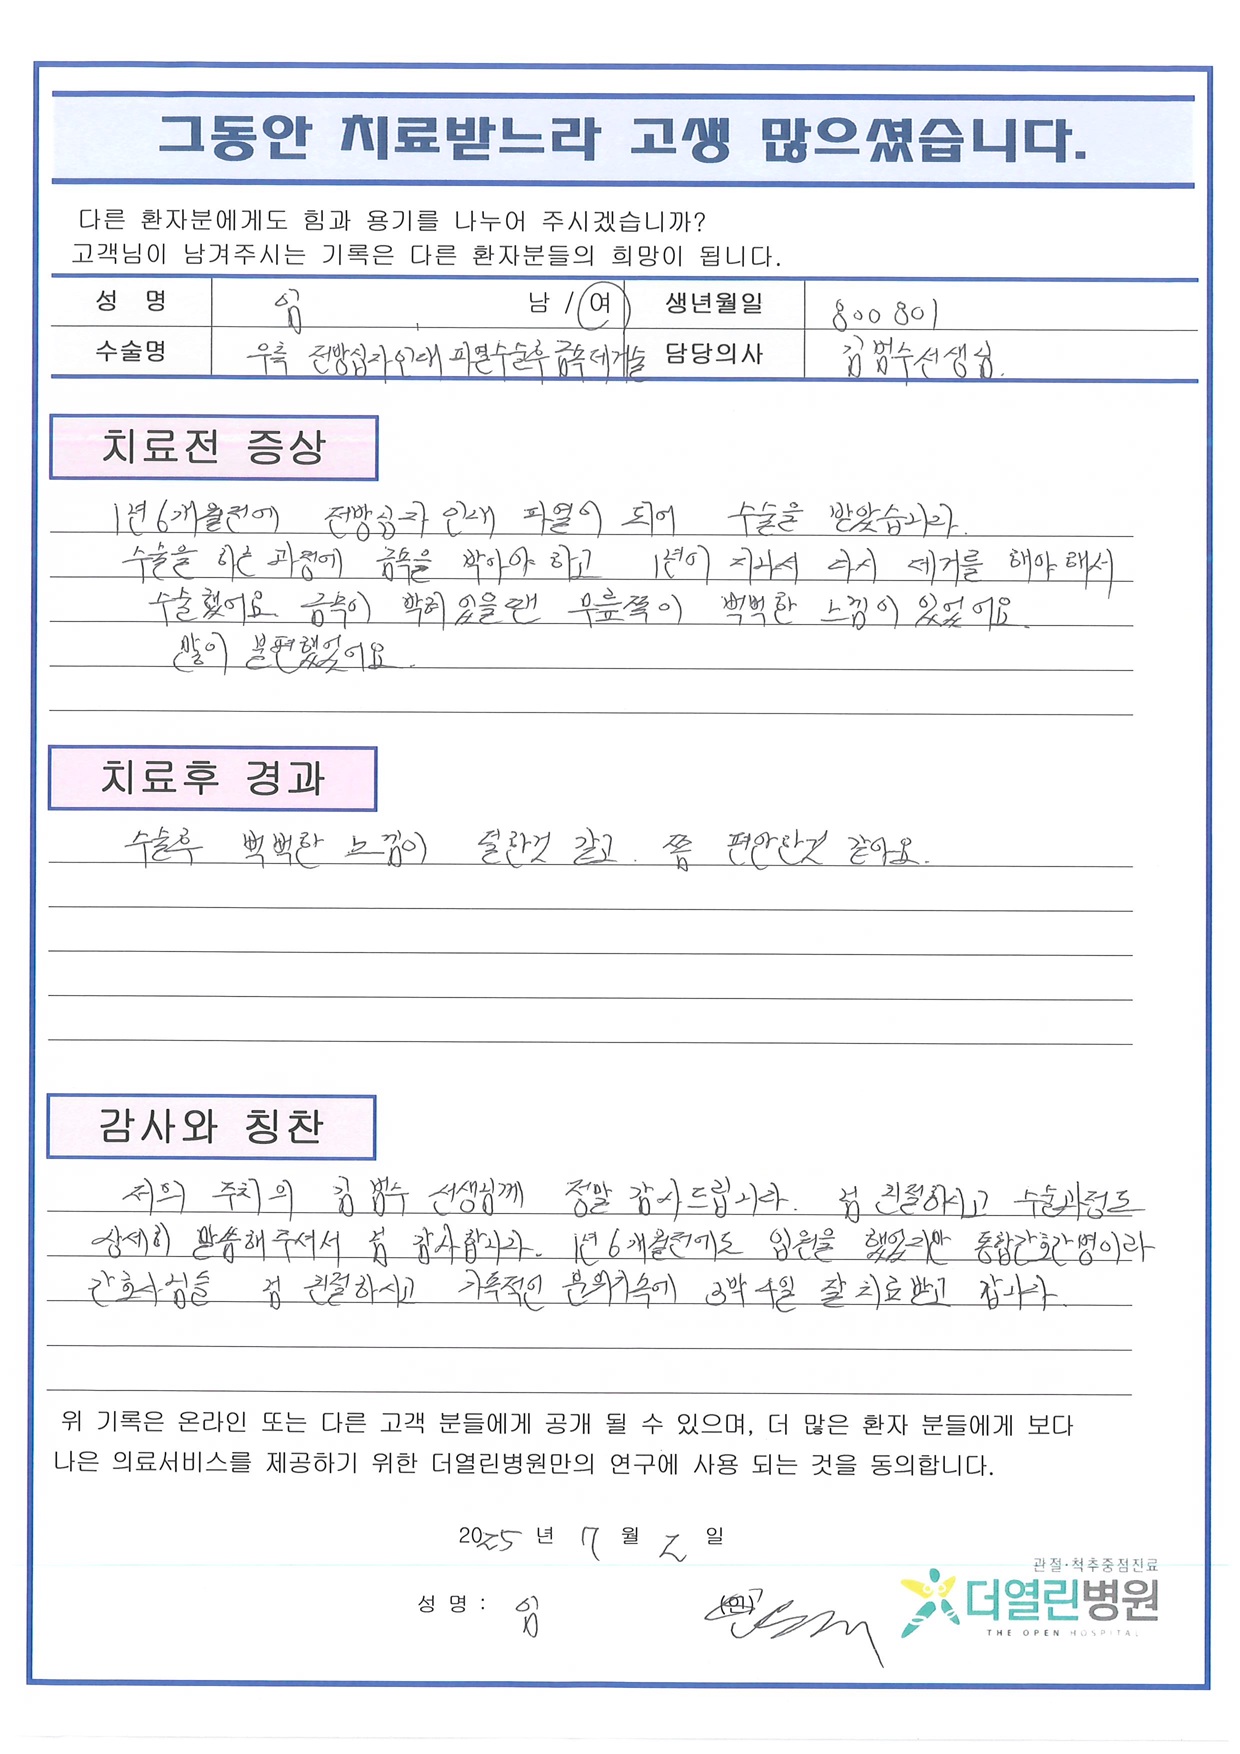 그동안 치료받느라 고생 많으셨습니다.
다른 환자분에게도 힘과 용기를 나누어 주시겠습니까?
고객님이 남겨주시는 기록은 다른 환자분들의 희망이 됩니다.
성 명 임 남 / 여 생년월일 800801
수술명 우측 전방십자인대 파열수술후 금속제거술 담당의사 김범수선생님.
치료전 증상
1년 6개월전에 전방십자 인대 파열이 되어 수술을 받았습니다.
수술을 하는 과정에 금속을 박아야 하고 1년이 지나서 다시 제거를 해야해서
수술했어요. 금속이 박혀있을땐 무릎쪽이 뻑뻑한 느낌이 있었어요.
많이 불편했었어요.
치료후 경과
수술후 뻑뻑한 느낌이 덜한것 같고. 쫌 편안한것 같아요.
감사와 칭찬
저의 주치의 김범수 선생님께 정말 감사드립니다. 넘 친절하시고 수술과정도
상세히 말씀해주셔서 넘 감사합니다. 1년 6개월전에도 입원을 했었지만 통합간호간병이라
간호사님들 넘 친절하시고 가족적인 분위기속에 3박4일 잘 치료받고 갑니다.
위 기록은 온라인 또는 다른 고객 분들에게 공개 될 수 있으며, 더 많은 환자 분들에게 보다
나은 의료서비스를 제공하기 위한 더열린병원만의 연구에 사용 되는 것을 동의합니다.
2025 년 7 월 2 일
관절·척추중점진료
성 명 : 임 (인) 더열린병원
THE OPEN HOSPITAL